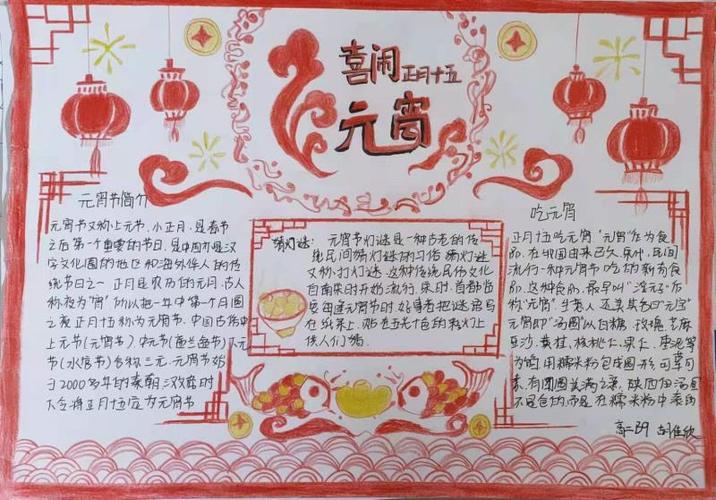 喜闹正月十五
元宵
元宵节简介
元宵节又称上元节,小正月,是春节
之后第一个重要的节日,是中国亦是汉
字文化圈的地区和海外华人的传
统节日之一 正月是农历的元月,古人
称夜为"宵"所以把一年中第一个月圆
之夜正月十五称为元宵节.中国古俗中
上元节(元宵节)中元节(盂兰盆节)下元
节(水官节)合称三元.元宵节始
于2000多年的秦朝.汉文帝时
下令将正月十五定为元宵节
猜灯谜: 元宵节灯谜是一种古老的传
统民间猜灯谜的习俗 猜灯谜
又称打灯谜.这种传统民俗文化
自南宋时开始流行.宋时.首都
每逢元宵节时 好事者把谜语写
在纸条上.贴在五光十色的彩灯上
供人们猜.
吃元宵
正月十五吃元宵"元宵"作为食
品.在中国由来已久.宋代.民间
流行一种元宵节吃的新奇食
品.这种食品.最早叫"浮元子"后
称"元宵".生意人还美其名曰"元宝"
元宵即"汤圆"以白糖.玫瑰.芝麻
豆沙.黄桂.核桃仁.果仁.枣泥等
为馅.用糯米粉包成圆形.可荤可
素.有团圆美满之意.陕西的汤圆
不是包的.而是在糯米粉中"滚"的
高二